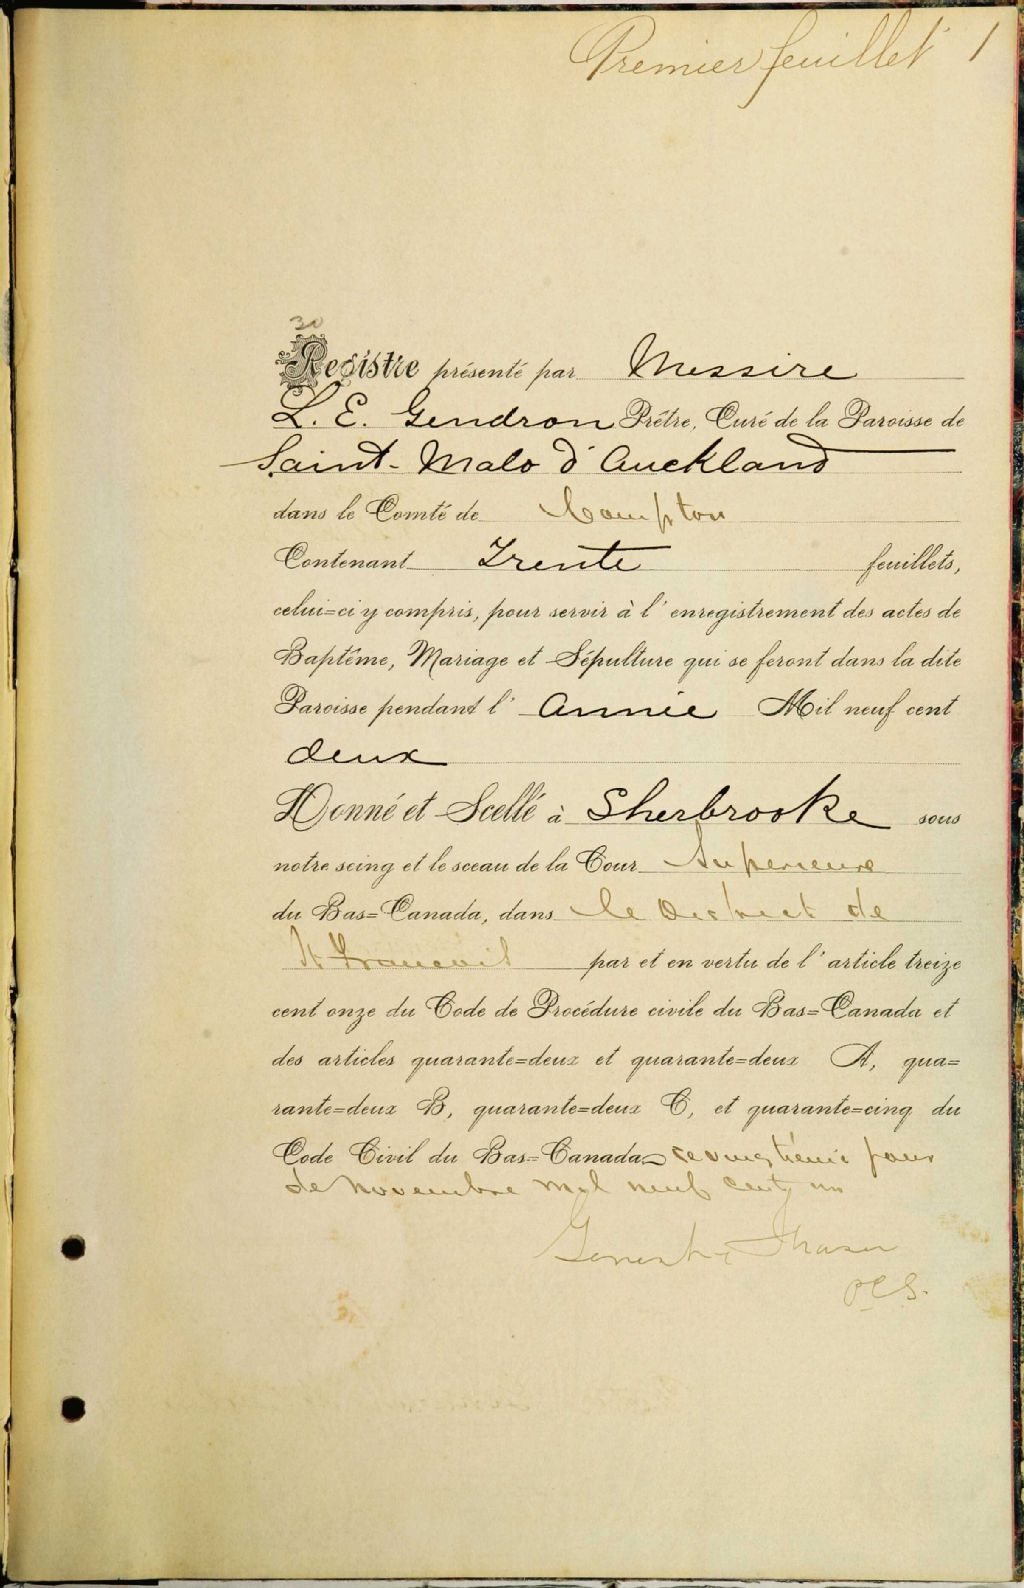 Premier feuillet 1
30
Registre présenté par Messire
L. E. Gendron Prêtre, Curé de la Paroisse de
Saint-Malo d'Auckland
dans le Comté de Compton
Contenant Trente feuillets,
celui=ci y compris, pour servir à l'enregistrement des actes de
Baptême, Mariage et Sépulture qui se feront dans la dite
Paroisse pendant l'Année Mil neuf cent
deux
Donné et Scellé à Sherbrooke sous
notre seing et le sceau de la Cour Superieure
du Bas=Canada, dans le District de
St François par et en vertu de l'article treize
cent onze du Code de Procédure civile du Bas=Canada et
des articles quarante=deux et quarante=deux A, qua=
rante=deux B, quarante=deux C, et quarante=cinq du
Code Civil du Bas=Canada ce vingtième jour
de novembre mil neuf cent un
P.C.S.